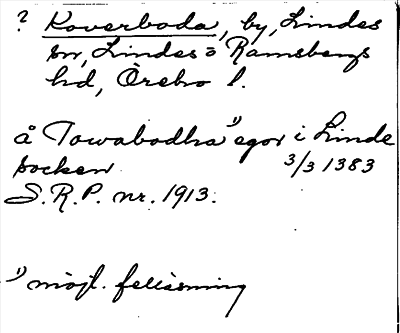 ? Koverboda, by, Lindes
sn, Lindes ō Ramsbergs
hd, Örebro l.
å Towabodha ¹⁾ egor i Linde
socken 3/3 1383
S.R.P. nr. 1913.
¹⁾ möjl. felläsning